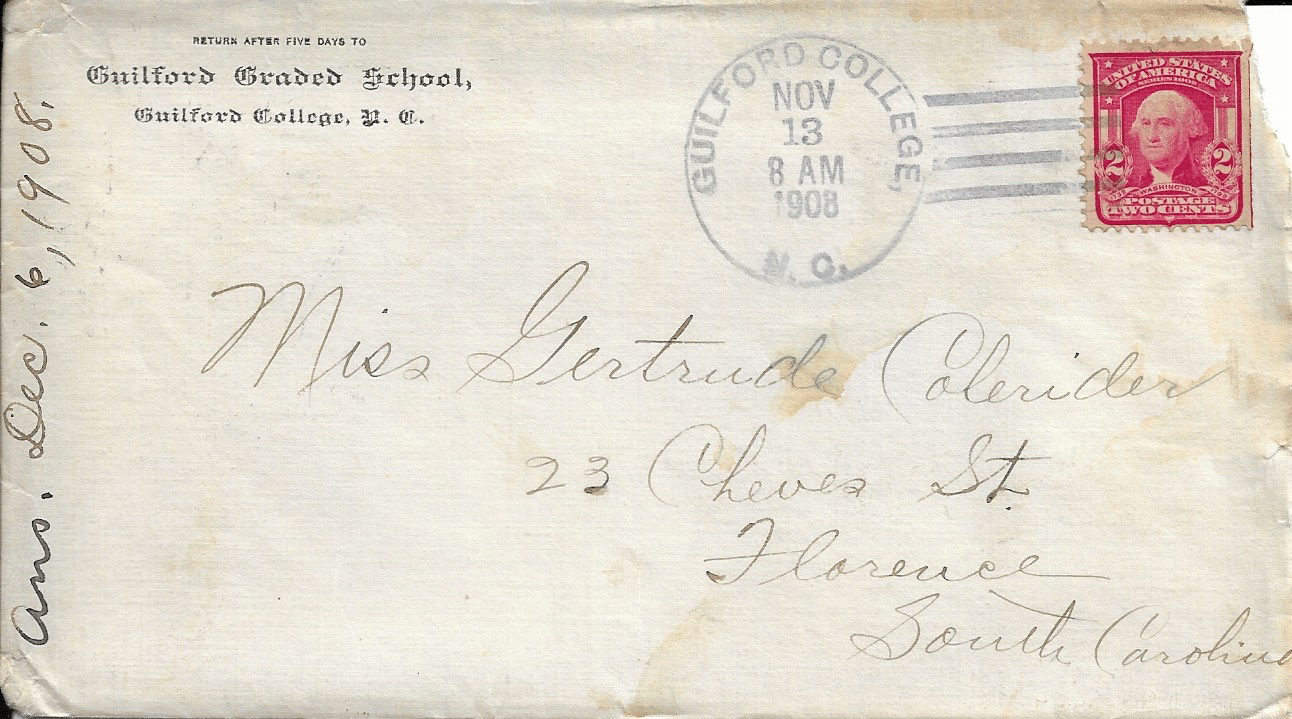 RETURN AFTER FIVE DAYS TO
Guilford Graded School,
Guilford College, N. C.
GUILFORD COLLEGE,
NOV
13
8 AM
1908
N. C.
UNITED STATES
OF AMERICA
SERIES 1902
2 2
WASHINGTON
POSTAGE
TWO CENTS
Miss Gertrude Colerider
23 Cheves St.
Florence
South Carolina
Ans. Dec. 6, 1908.